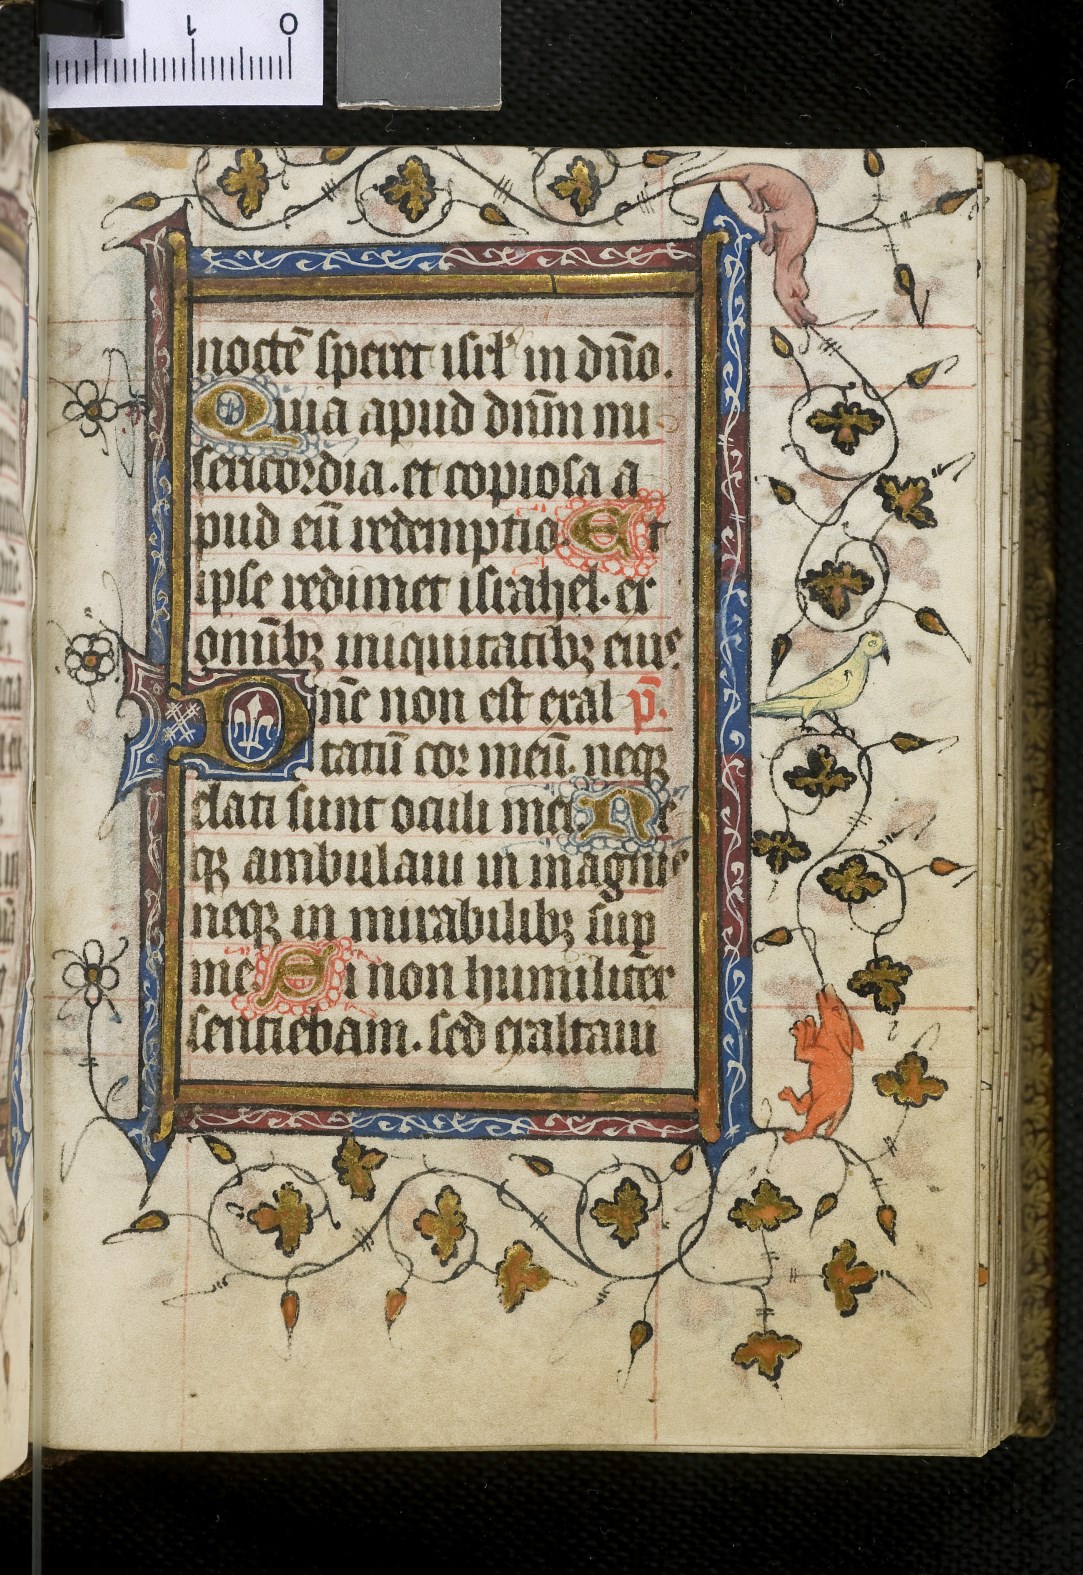 1 0
noctē speret isrl' in dn̄o.
Quia apud dnm̄ mi
sericordia. et copiosa a
pud eū redemptio. Et
ipse redimet israhel. ex
om̄ibꝫ iniquitatibꝫ eius.
Dn̄e non est exal p̄.
tatū cor meū. neqꝫ
elati sunt oculi mei Ne
qꝫ ambulaui in magnis
neqꝫ in mirabilibꝫ suꝑ
me. Si non humiliter
sentiebam. sed exaltaui